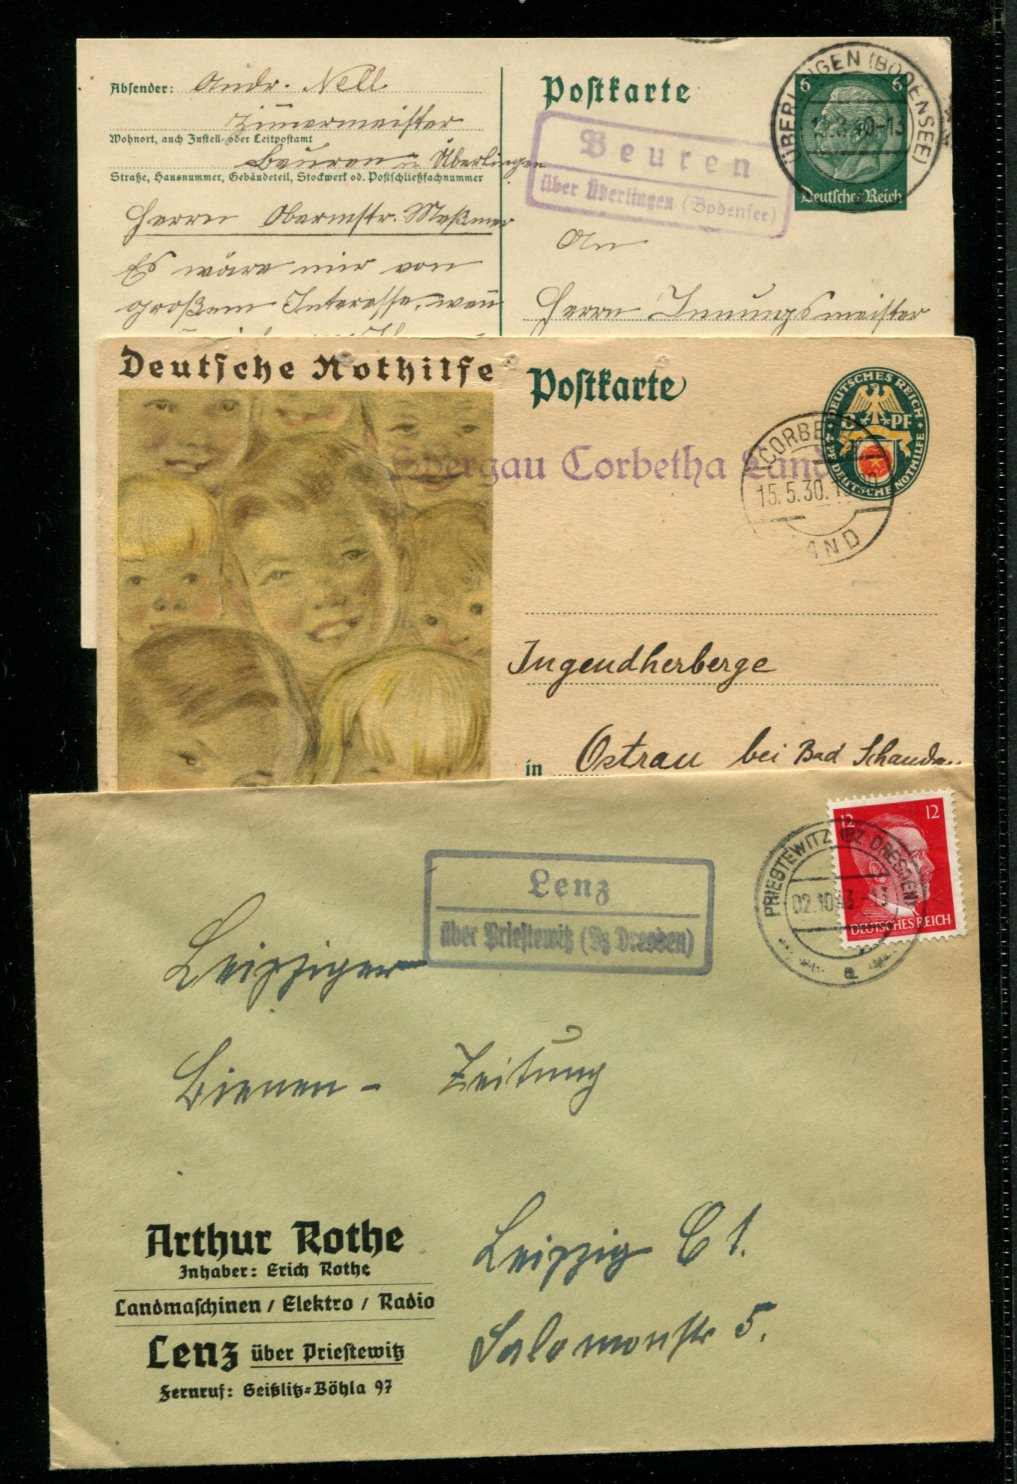 Absender: Andr. Nell
Zimmermeister
Wohnort, auch Zustell- oder Leitpostamt
Beuren Überlingen
Straße, Hausnummer, Gebäudeteil, Stockwerk od. Postschließfachnummer
Herrn Obermstr. Meßmer
Es wäre mir von
großem Interesse, wenn
Postkarte
Beuren
über Überlingen (Bodensee)
ÜBERLINGEN (BODENSEE)
6 6
Deutsches Reich
An
Herrn Innungsmeister
Deutsche Nothilfe
Postkarte
Spergau Corbetha Land
CORBE
15.5.30.
AND
DEUTSCHES REICH
PF
DEUTSCHE NOTHILFE
Jugendherberge
in Ostrau bei Bad Schandau
Lenz
über Priestewitz (Bz Dresden)
PRIESTEWITZ (BZ. DRESDEN)
02.10.43
a
12 12
DEUTSCHES REICH
Leipziger
Bienen-Zeitung
Leipzig C 1.
Salomonstr 5.
Arthur Rothe
Inhaber: Erich Rothe
Landmaschinen / Elektro / Radio
Lenz über Priestewitz
Fernruf: Geißlitz-Böhla 97